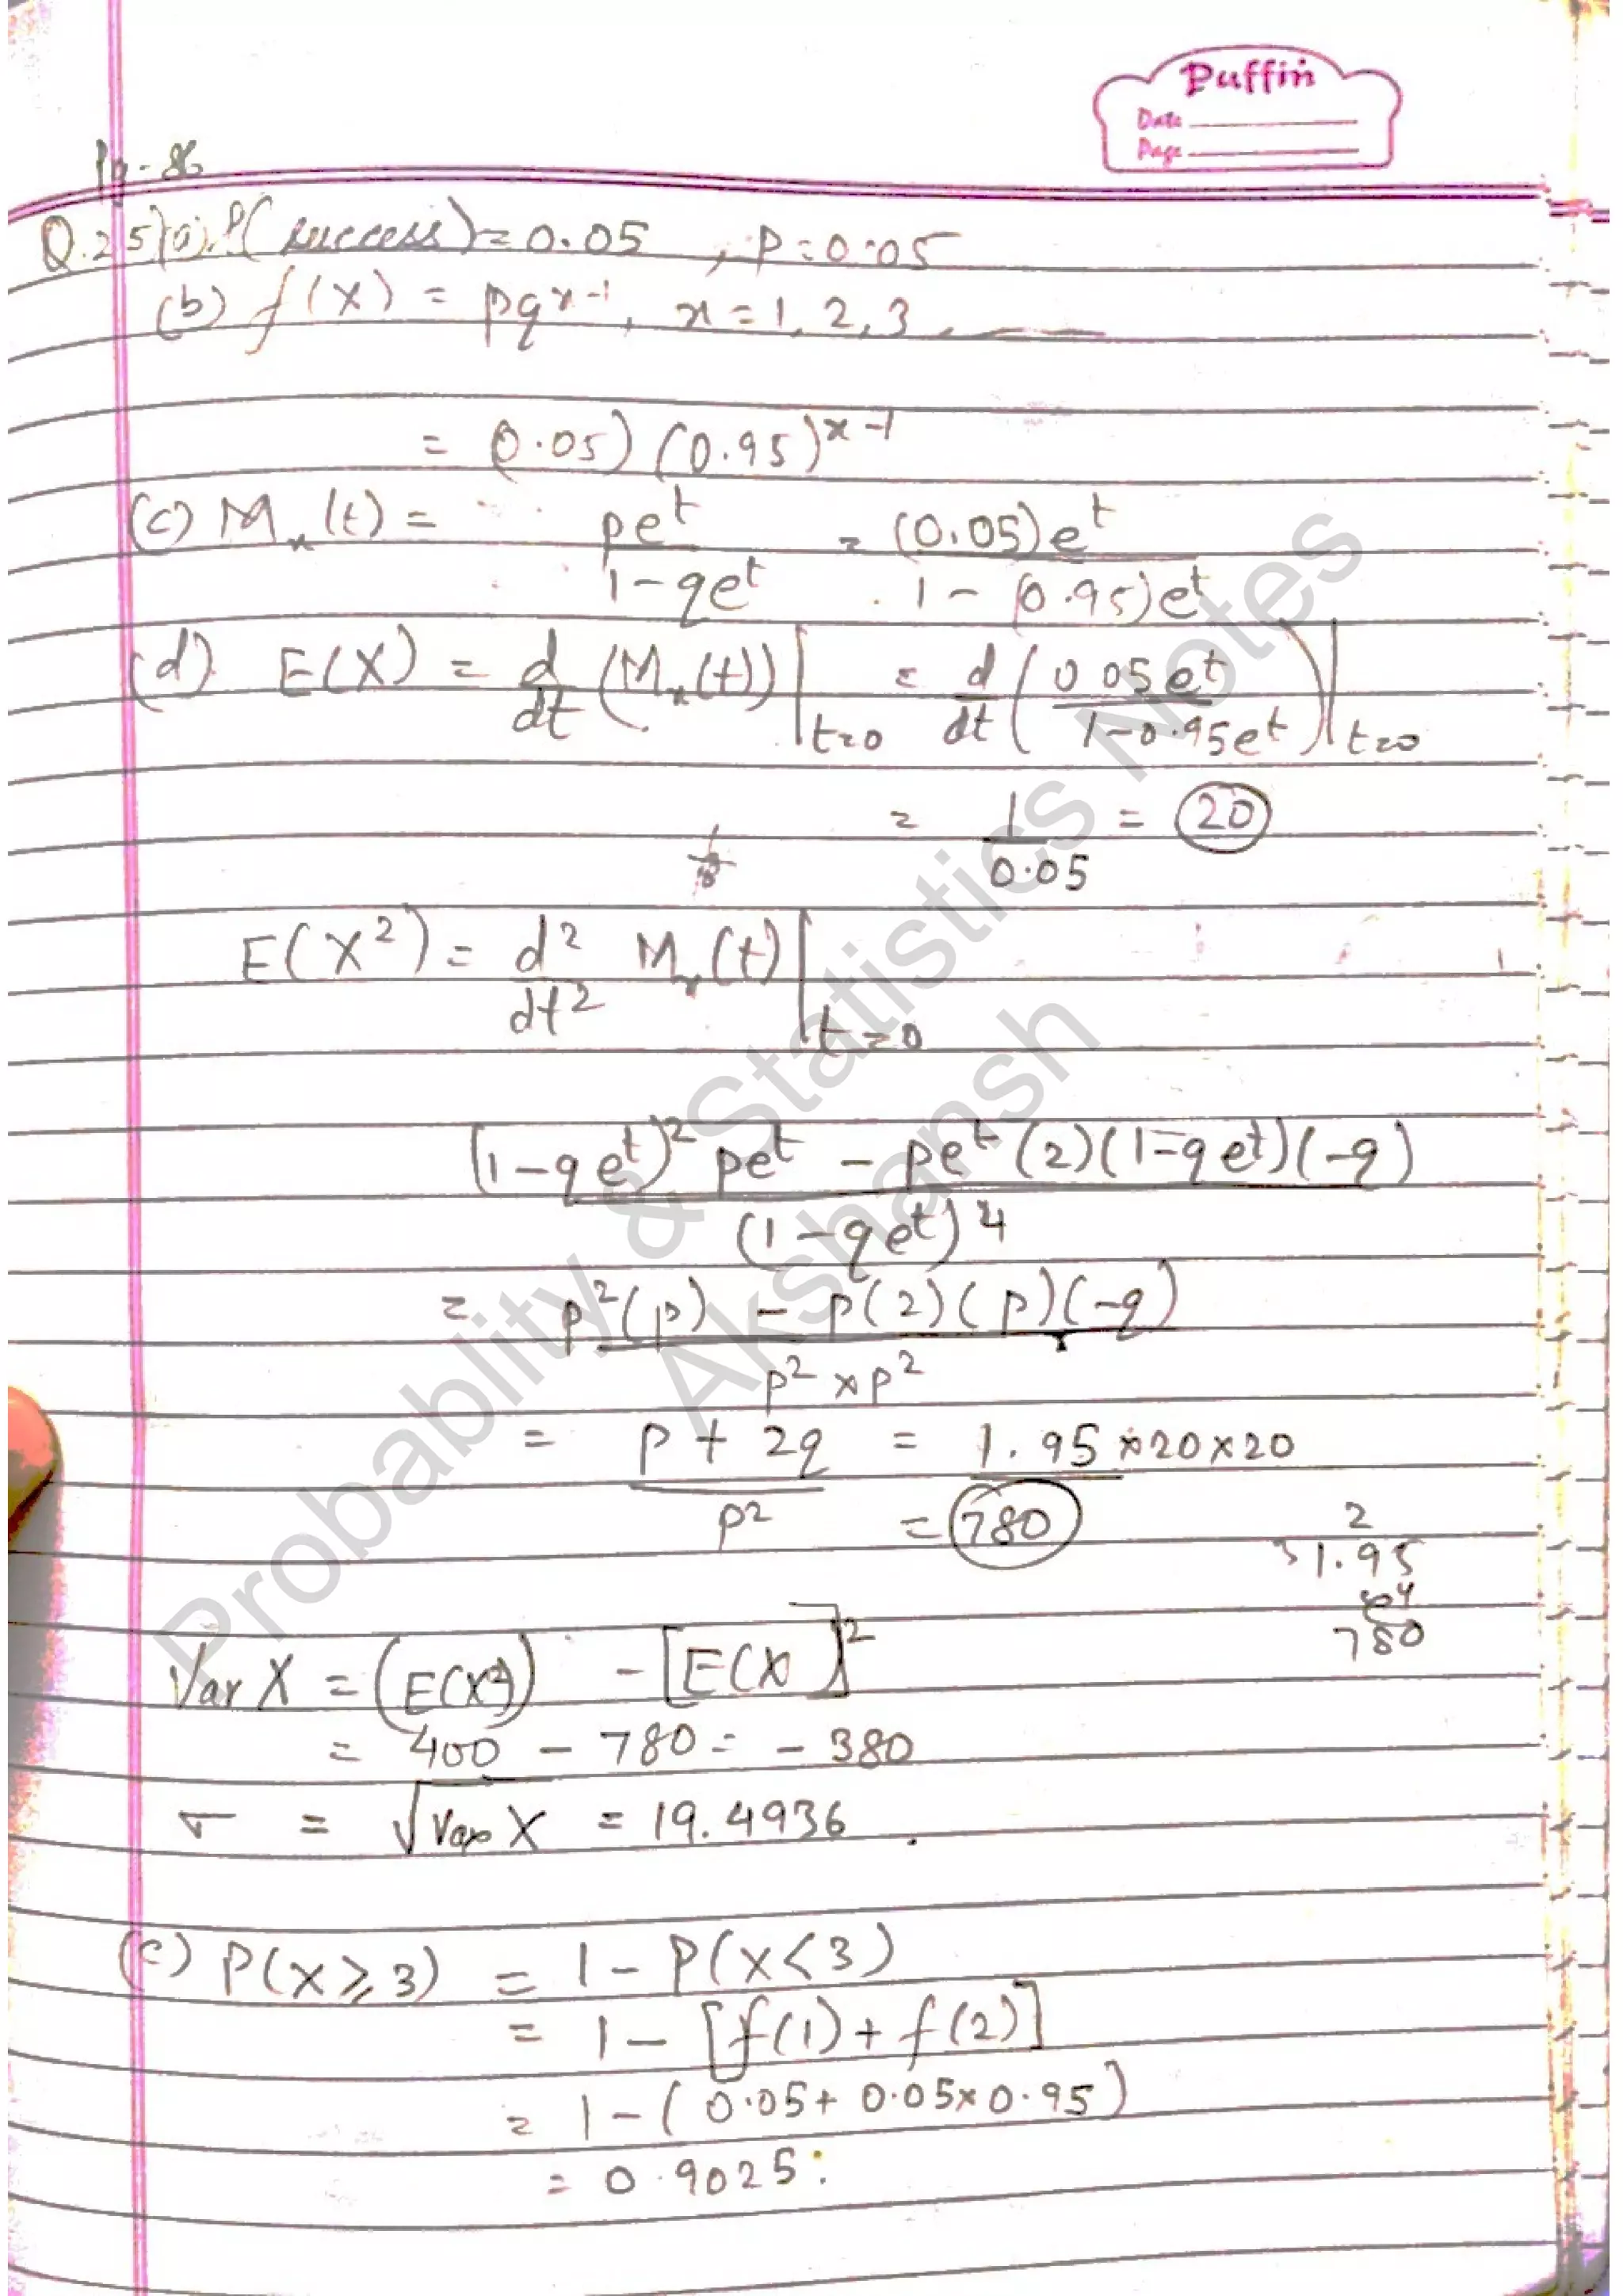 Puffin
Date
Page
Pg - 86
Q.25) (a) P(success) = 0.05 , p = 0.05
(b) f(X) = pq^x-1, x = 1, 2, 3, ____
= (0.05) (0.95)^x-1
(c) M_x(t) = pe^t / 1-qe^t = (0.05)e^t / 1-(0.95)e^t
(d) E(X) = d/dt (M_x(t)) | t=0 = d/dt ( 0.05e^t / 1-0.95e^t ) | t=0
= 1/0.05 = 20
E(X²) = d²/dt² M_x(t) | t=0
(1-qe^t)² pe^t - pe^t (2)(1-qe^t)(-q) / (1-qe^t)^4
= p²(p) - p(2)(p)(-q) / p² × p²
= p + 2q / p² = 1.95 × 20 × 20
= 780
2
1.95
×4
780
Var X = (E(X²)) - [E(X)]²
= 400 - 780 = - 380
σ = √Var X = 19.4936
(e) P(X ≥ 3) = 1 - P(X < 3)
= 1 - [f(1) + f(2)]
= 1 - (0.05 + 0.05 × 0.95)
= 0.9025
Probablity & Statistics Notes
Akshansh